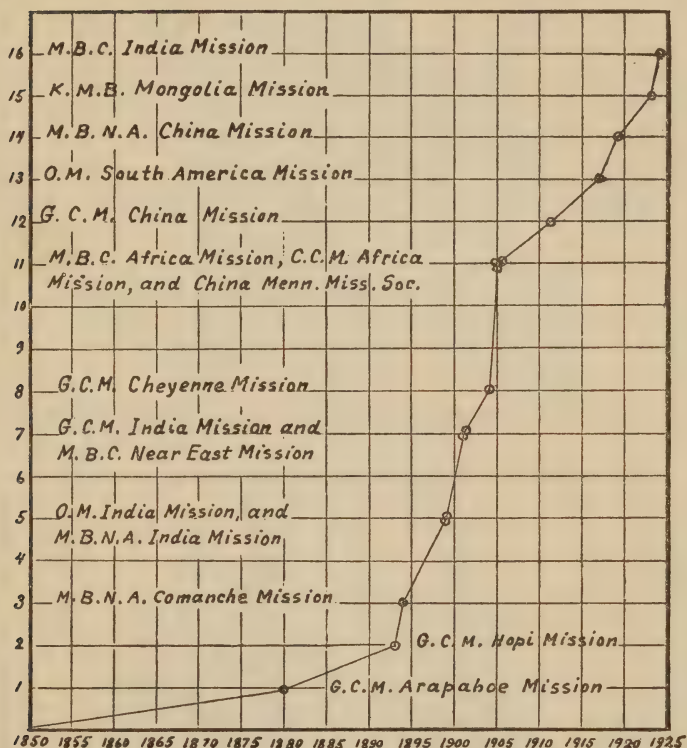 16 M.B.C. India Mission
15 K.M.B. Mongolia Mission
14 M.B.N.A. China Mission
13 O.M. South America Mission
12 G.C.M. China Mission
11 M.B.C. Africa Mission, C.C.M. Africa
Mission, and China Menn. Miss. Soc.
10
9
8 G.C.M. Cheyenne Mission
7 G.C.M. India Mission and
M.B.C. Near East Mission
6
5 O.M. India Mission, and
M.B.N.A. India Mission
4
3 M.B.N.A. Comanche Mission
2 G.C.M. Hopi Mission
1 G.C.M. Arapahoe Mission
1850 1855 1860 1865 1870 1875 1880 1885 1890 1895 1900 1905 1910 1915 1920 1925